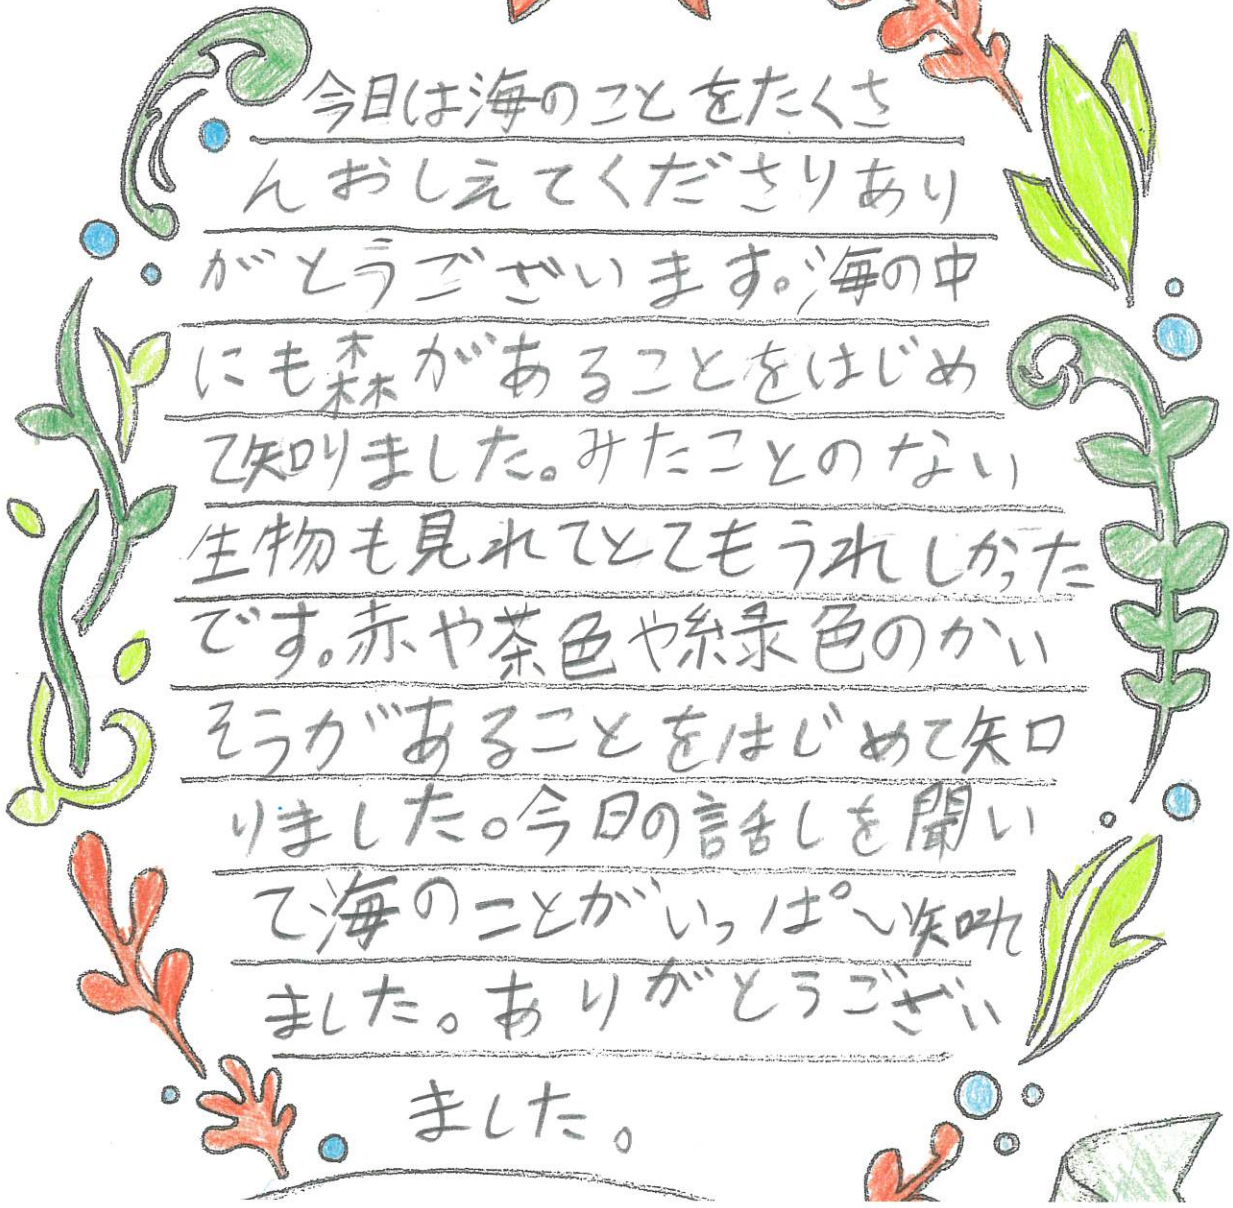 今日は海のことをたくさ
んおしえてくださりあり
がとうございます。海の中
にも森があることをはじめ
て知りました。みたことのない
生物も見れてとてもうれしかった
です。赤や茶色や緑色のかい
そうがあることをはじめて知
りました。今日の話しを聞い
て海のことがいっぱい知れ
ました。ありがとうござい
ました。